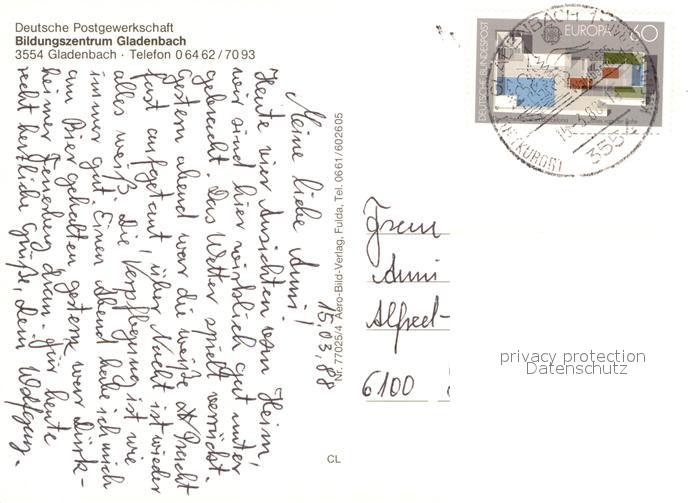 Deutsche Postgewerkschaft
Bildungszentrum Gladenbach
3554 Gladenbach · Telefon 0 64 62 / 70 93
Meine liebe Anni!
15.03.88
Heute vier Ansichten vom Heim,
wir sind hier wirklich gut unter
gebracht. Das Wetter spielt verrückt.
Gestern abend war die weiße Pracht
fast aufgetaut, über Nacht ist wieder
alles weiß. Die Verpflegung ist wie
immer gut. Einen Abend habe ich mich
am Bier gehalten, gestern war Dürk-
heimer Feuerberg dran. Für heute
recht herzliche Grüße, Dein Wolfgang.
Nr. 77025/4 Aero-Bild-Verlag, Fulda, Tel. 0661/602605
CL
DEUTSCHE BUNDESPOST
EUROPA
60
355
KURORT
Frau
Anni
Alfred-
6100
privacy protection
Datenschutz